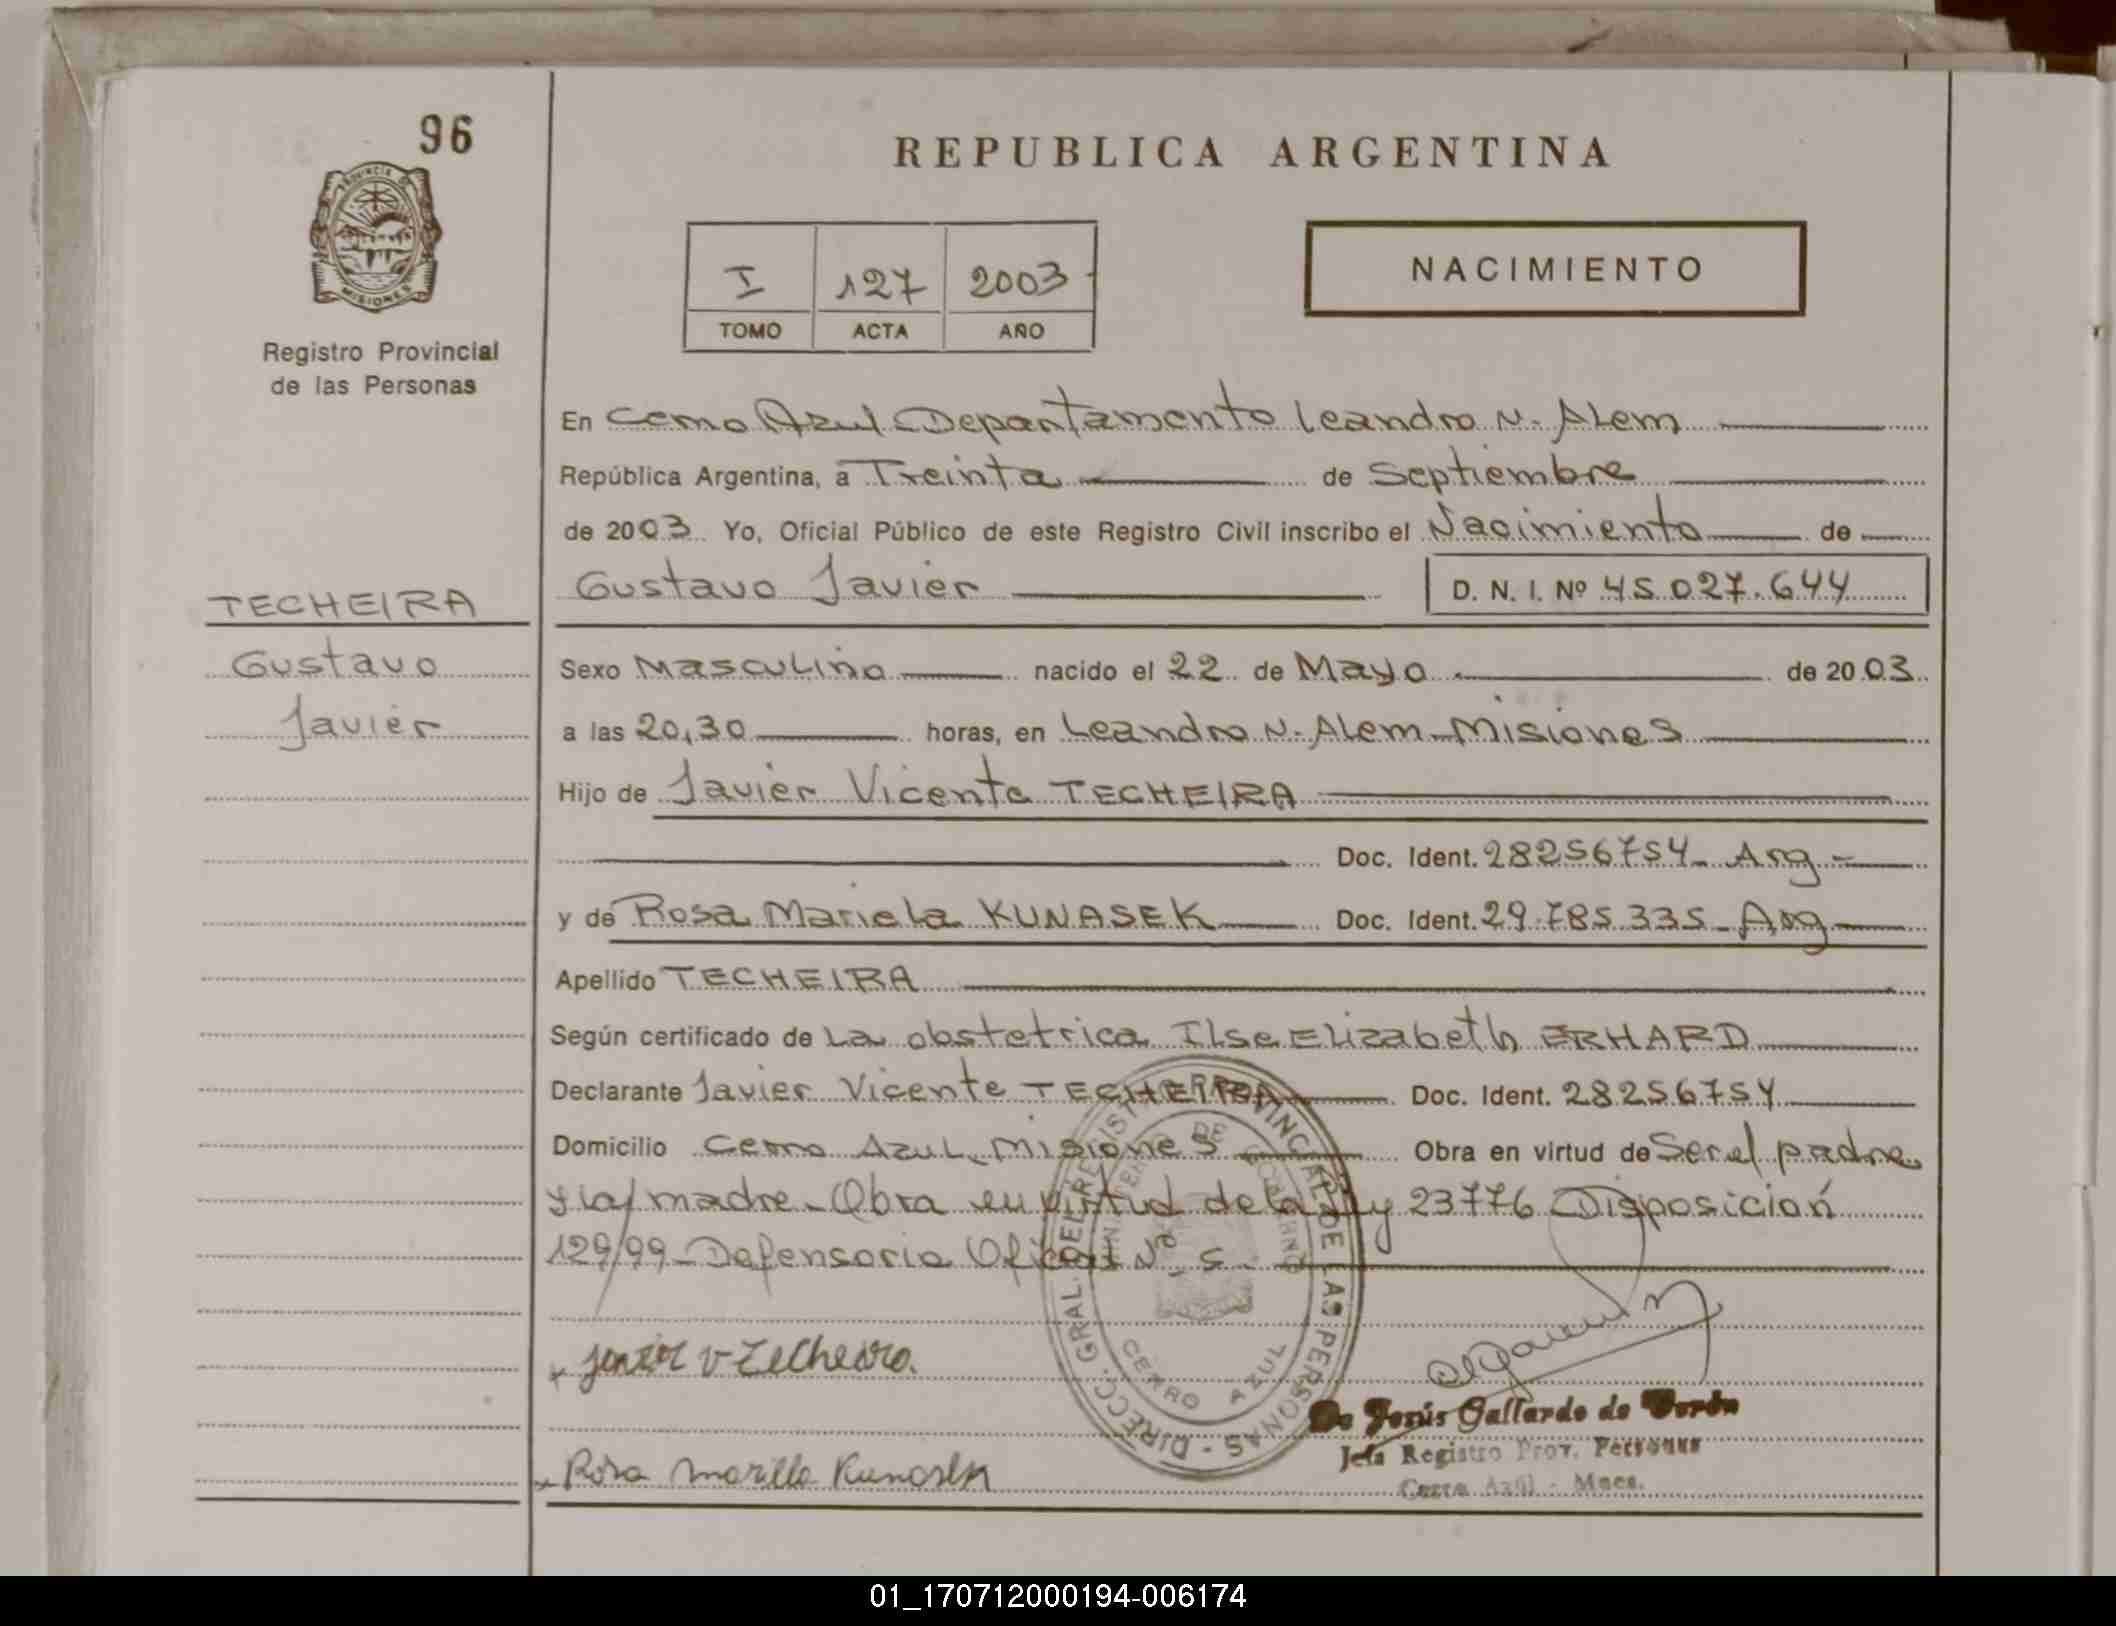 96
REPUBLICA ARGENTINA
PROVINCIA DE MISIONES
Registro Provincial
de las Personas
I 127 2003
TOMO ACTA AÑO
NACIMIENTO
En Cerro Azul Departamento Leandro N. Alem
República Argentina, a Treinta de Septiembre
de 2003 Yo, Oficial Público de este Registro Civil inscribo el Nacimiento de
Gustavo Javier D. N. I. Nº 45.027.644
TECHEIRA
Gustavo
Javier
Sexo Masculino nacido el 22 de Mayo de 2003
a las 20,30 horas, en Leandro N. Alem - Misiones
Hijo de Javier Vicente TECHEIRA
Doc. Ident. 28256754 - Arg -
y de Rosa Mariela KUNASEK Doc. Ident. 29.785.335 - Arg
Apellido TECHEIRA
Según certificado de La obstetrica Ilse Elizabeth ERHARD
Declarante Javier Vicente TECHEIRA Doc. Ident. 28256754
Domicilio Cerro Azul - Misiones Obra en virtud de Ser el padre
y la madre - Obra en virtud de la Ley 23776 Disposición
129/99 - Defensoria Oficial Nº 5
DIRECC. GRAL. DEL REGISTRO PROVINCIAL DE LAS PERSONAS
MINISTERIO DE GOBIERNO
CERRO AZUL
Rosa Kunasek
De Jesús Gallardo de
Jefa Registro Prov. Personas
Cerro Azul - Mnes.
01_170712000194-006174